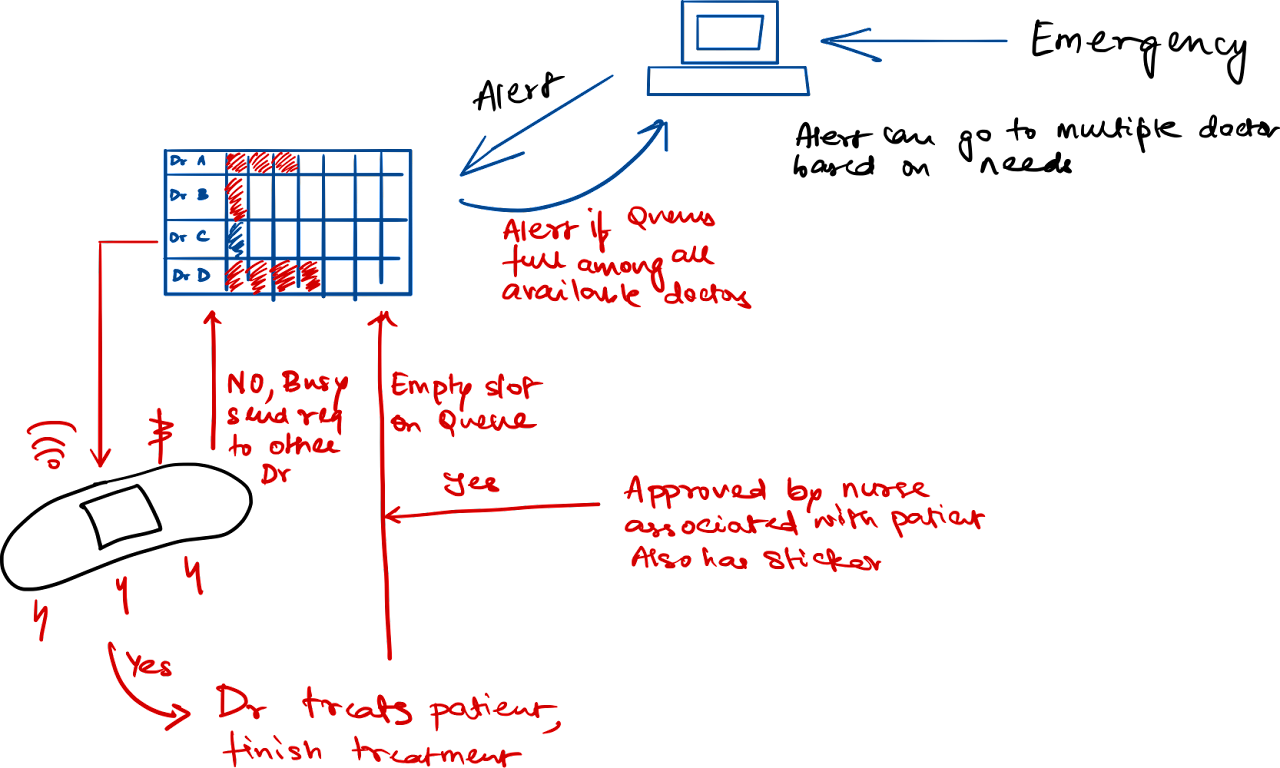 Emergency
Alert
Alert can go to multiple doctor
based on needs
Dr A
Dr B
Dr C
Dr D
Alert if Queues
full among all
available doctors
NO, Busy
send req
to other
Dr
Empty slot
on Queue
Yes
Approved by nurse
associated with patient
Also has sticker
Yes
Dr treats patient,
finish treatment